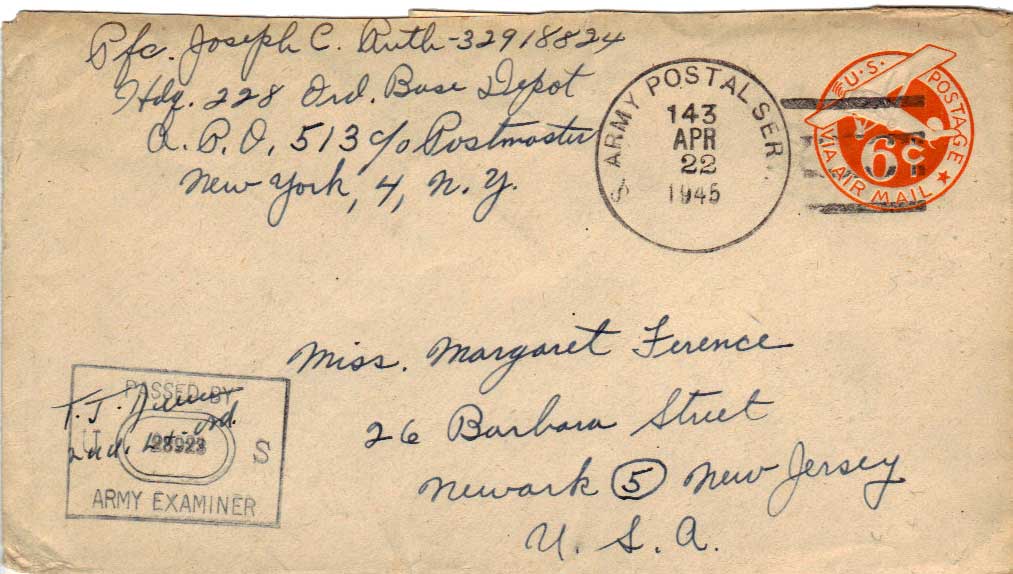 Pfc. Joseph C. Ruth-32918824
Hdq. 228 Ord. Base Depot
A.P.O. 513 c/o Postmaster
New York, 4, N.Y.
S. ARMY POSTAL SER.
143
APR
22
1945
U.S. POSTAGE
6¢
VIA AIR MAIL
Miss. Margaret Ference
26 Barbara Street
Newark 5 New Jersey
U. S. A.
PASSED BY
T. J.
U 28923 S
2nd. Lt. Ord.
ARMY EXAMINER